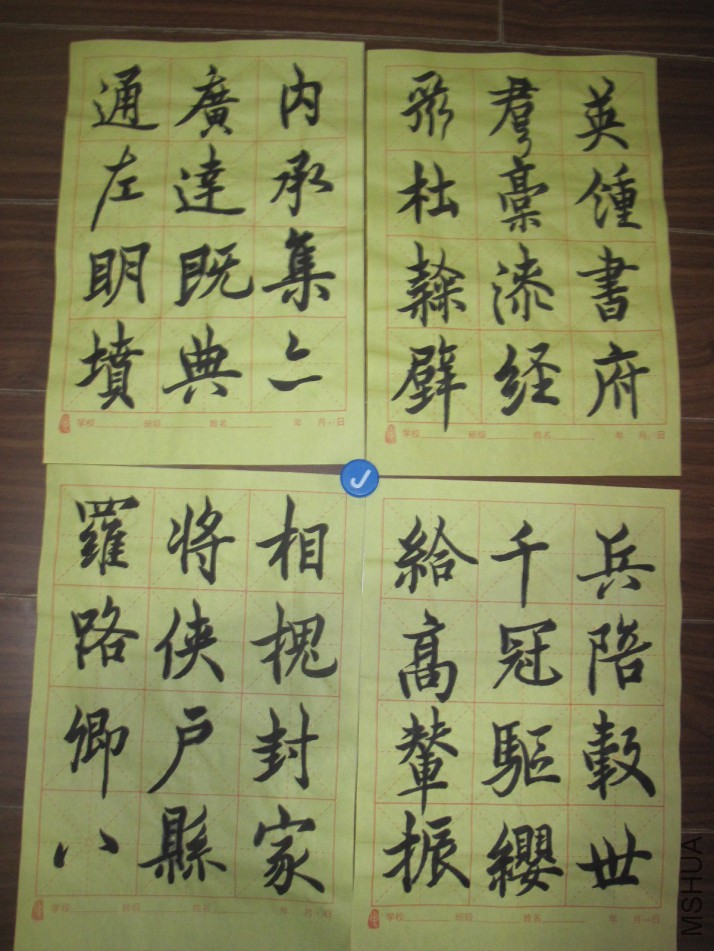 通廣内
左達承
明既集
墳典亦
学校 班级 姓名 年 月 日
聚羣英
杜稾鍾
隸漆書
壁经府
学校 班级 姓名 年 月 日
羅将相
路侠槐
卿户封
八縣家
学校 班级 姓名 年 月 日
給千兵
髙冠陪
輦驅轂
振纓世
学校 班级 姓名 年 月 日
MSHUA